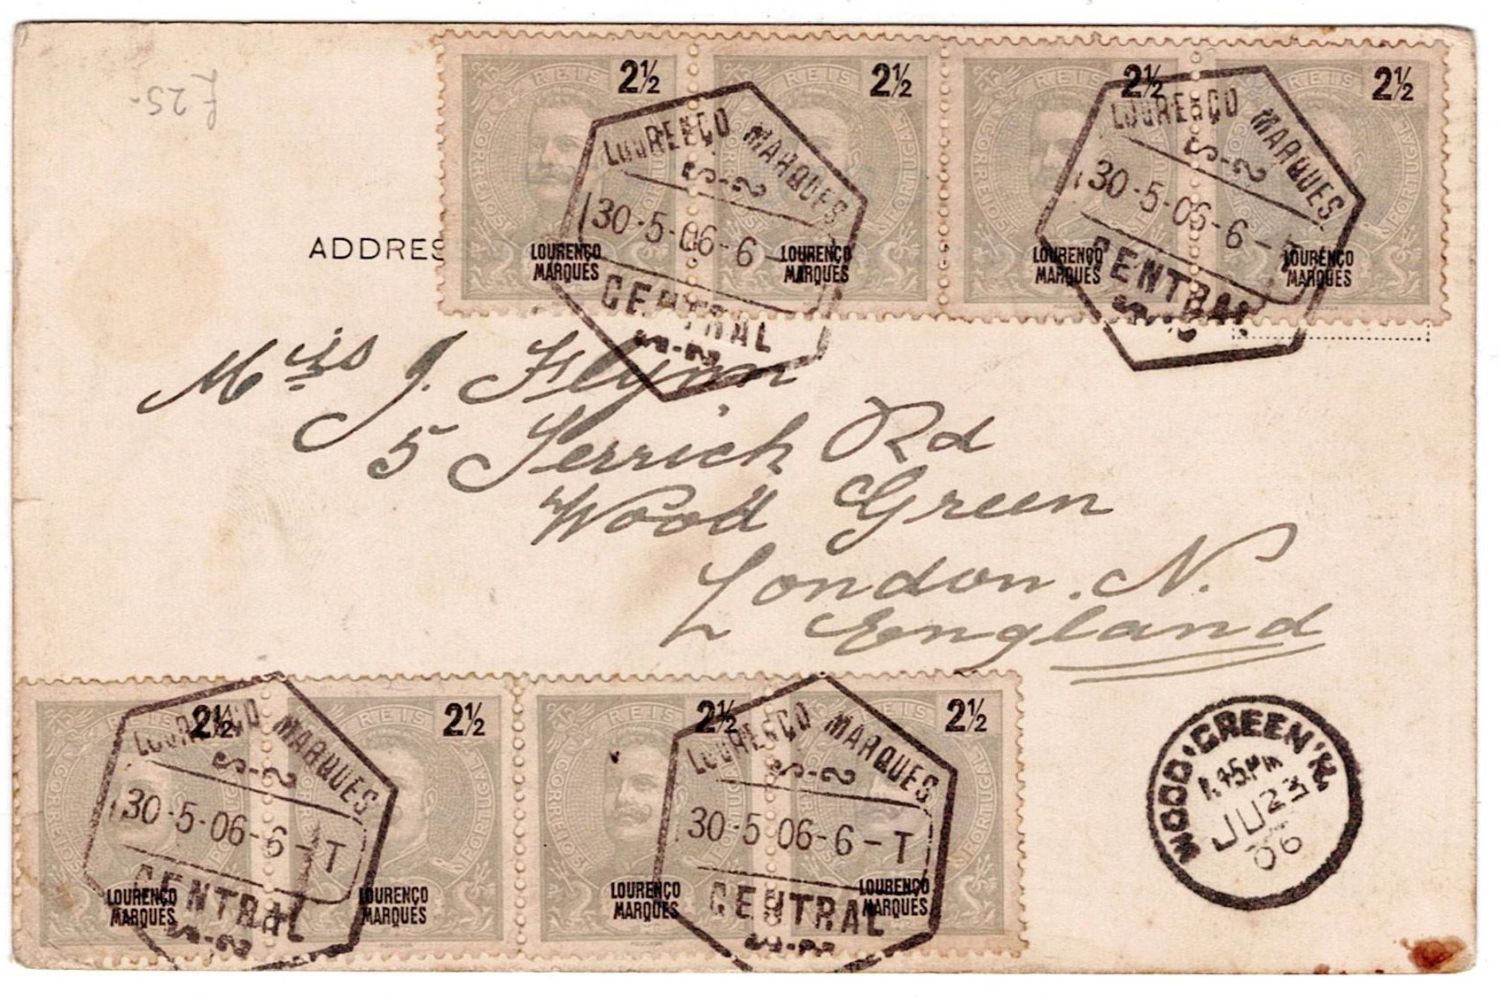 £25-
REIS 2½ REIS 2½ REIS 2½ REIS 2½
CORREIOS PORTUGAL CORREIOS PORTUGAL
LOURENÇO MARQUES LOURENÇO MARQUES
30-5-06-6- 30-5-06-6-T
CENTRAL CENTRAL
LOURENÇO LOURENÇO LOURENÇO LOURENÇO
MARQUES MARQUES MARQUES MARQUES
ADDRES
Miss J. Flynn
5 Terrick Rd
Wood Green
London. N.
England
REIS 2½ REIS 2½ REIS 2½ REIS 2½
CORREIOS PORTUGAL CORREIOS PORTUGAL
LOURENÇO MARQUES LOURENÇO MARQUES
30-5-06-6-T 30-5-06-6-T
CENTRAL CENTRAL
LOURENÇO LOURENÇO LOURENÇO LOURENÇO
MARQUES MARQUES MARQUES MARQUES
WOOD GREEN N.
1.45 PM
JU 23
06